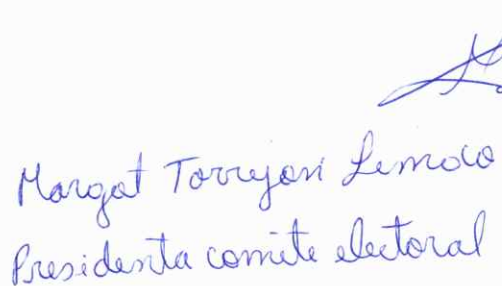 Margot Torrejon
Presidenta comite electoral